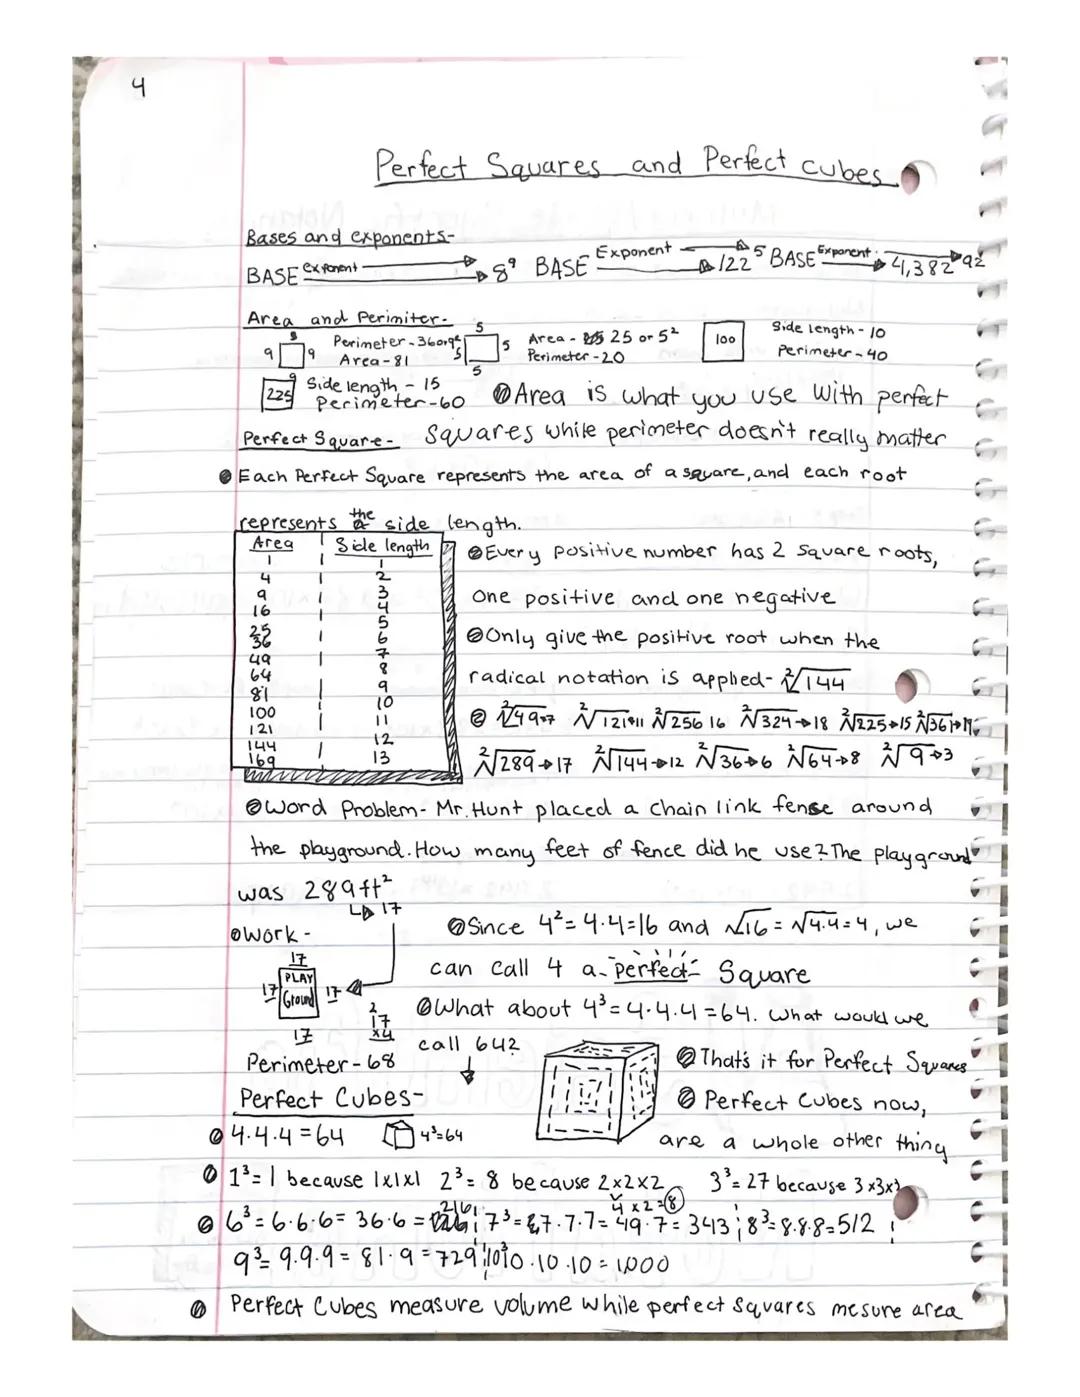 4
Perfect Squares and Perfect cubes
Bases and exponents-
BASE exponent 8⁹ BASE Exponent 122⁵ BASE Exponent 4,382⁹²
Area and Perimiter-
9 9 9 9 Perimeter-36 or 9² Area-81
5 5 5 5 Area - 25 or 5² Perimeter-20
100 Side length-10 Perimeter-40
225 Side length - 15 Perimeter-60
Area is what you use with perfect
squares while perimeter doesn't really matter
Perfect Square-
Each Perfect Square represents the area of a square, and each root
represents the side length.
Area Side length
1 1
4 2
9 3
16 4
25 5
36 6
49 7
64 8
81 9
100 10
121 11
144 12
169 13
Every positive number has 2 square roots,
one positive and one negative
Only give the positive root when the
radical notation is applied- ²√144
²√49→7 ²√121→11 ²√256 16 ²√324→18 ²√225→15 ²√361→19
²√289→17 ²√144→12 ²√36→6 ²√64→8 ²√9→3
Word Problem- Mr. Hunt placed a chain link fense around
the playground. How many feet of fence did he use? The playground
was 289ft²
↳ 17
Work-
17
PLAY
17 Ground 17
17
2
17
x4
Perimeter-68
Since 4²=4·4=16 and √16=√4·4=4, we
can call 4 a perfect Square
What about 4³=4·4·4=64. What would we
call 64?
That's it for Perfect Squares
Perfect Cubes now,
are a whole other thing
Perfect Cubes-
4·4·4=64 4³=64
1³=1 because 1x1x1 2³=8 because 2x2x2 3³=27 because 3x3x3
4x2=8
6³=6·6·6=36·6=216 7³=7·7·7=49·7=343 8³=8·8·8=512
9³=9·9·9=81·9=729 10³ 10·10·10=1,000
Perfect Cubes measure volume while perfect squares mesure area